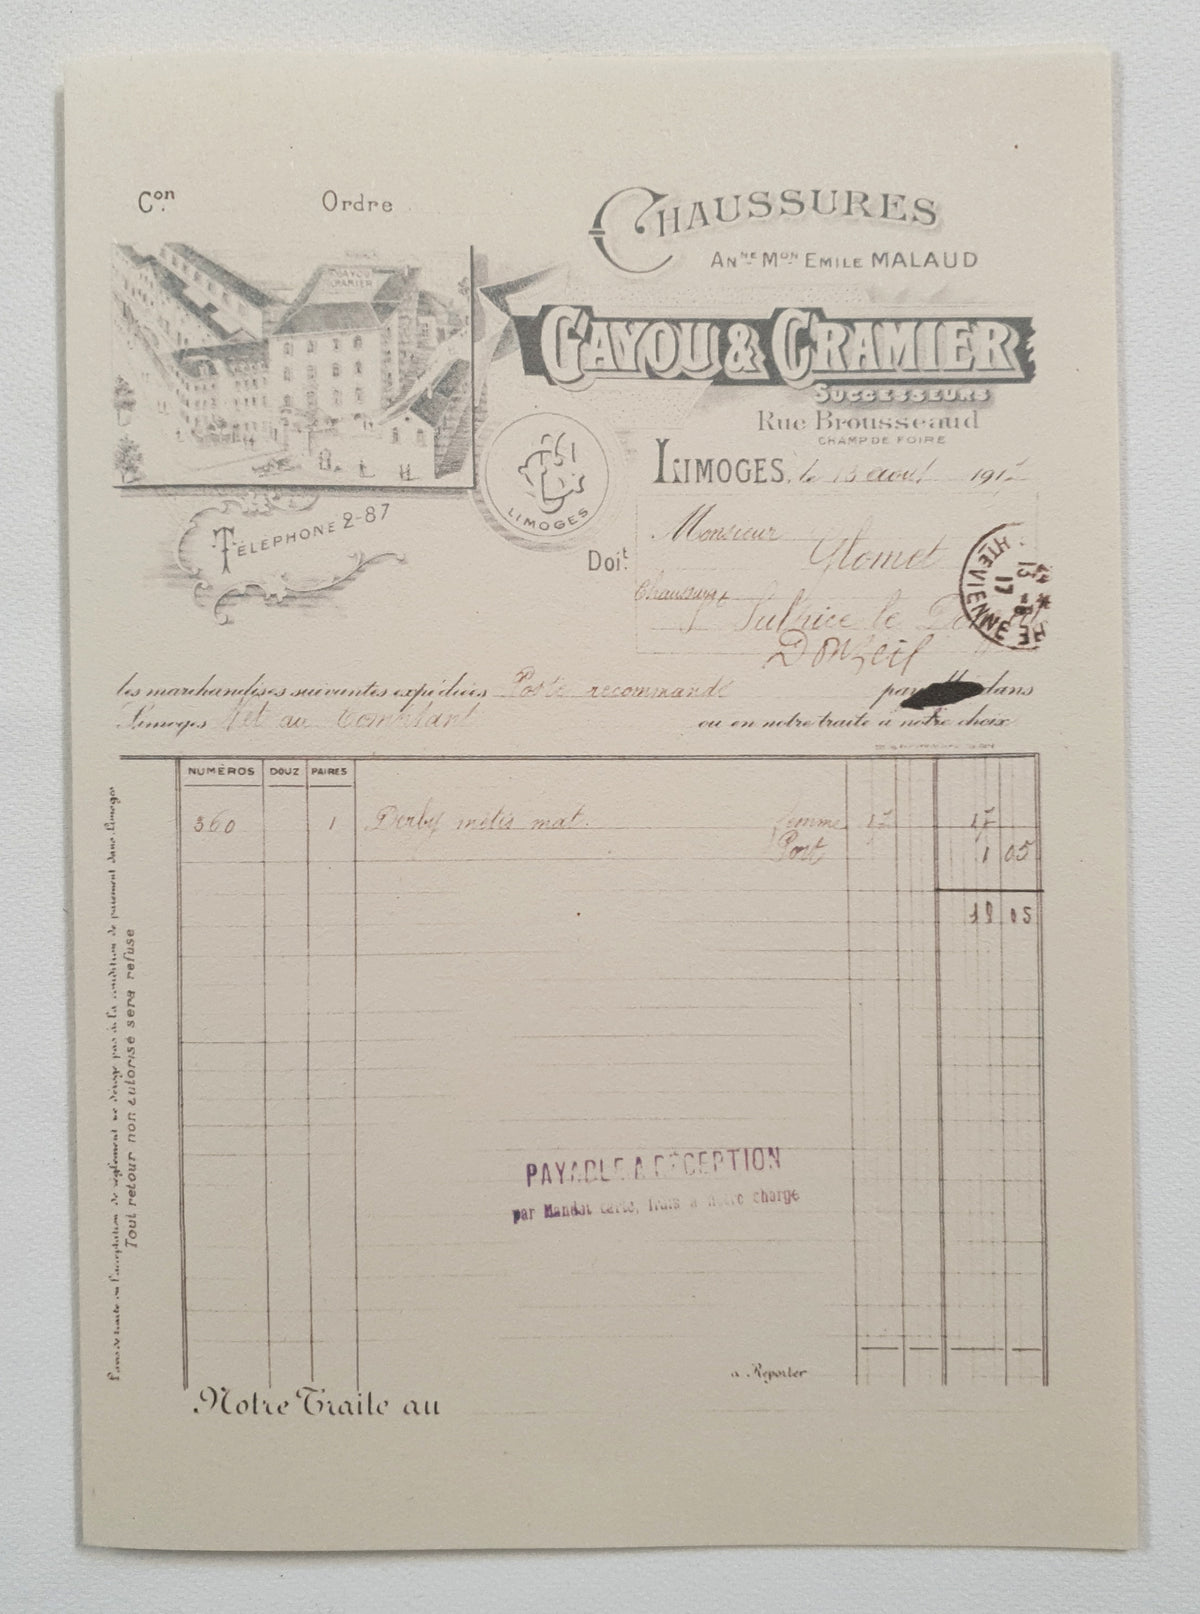 Con Ordre
CHAUSSURES
ANNE MON EMILE MALAUD
GAYOU & CRAMIER
GAYOU & CRAMIER
SUCCESSEURS
Rue Brousseaud
CHAMP DE FOIRE
LIMOGES, le 13 Aout 1917
LIMOGES
TÉLÉPHONE 2-87
Doit
Monsieur Glomet
Chaussures
St Sulpice le Donzeil
Donzeil
HTE VIENNE
13 -8
17
les marchandises suivantes expédiées Poste recommandé dans
Limoges Net au Comptant ou en notre traite à notre choix
NUMÉROS DOUZ PAIRES
360 1 Derby métis mat. femme 17 17
Port 1 05
18 05
PAYABLE A RÉCEPTION
par Mandat carte, frais à notre charge
L'envoi de traite ou l'acceptation de règlement ne déroge pas à la condition de paiement dans Limoges
Tout retour non autorisé sera refusé
à Reporter
Notre Traite au